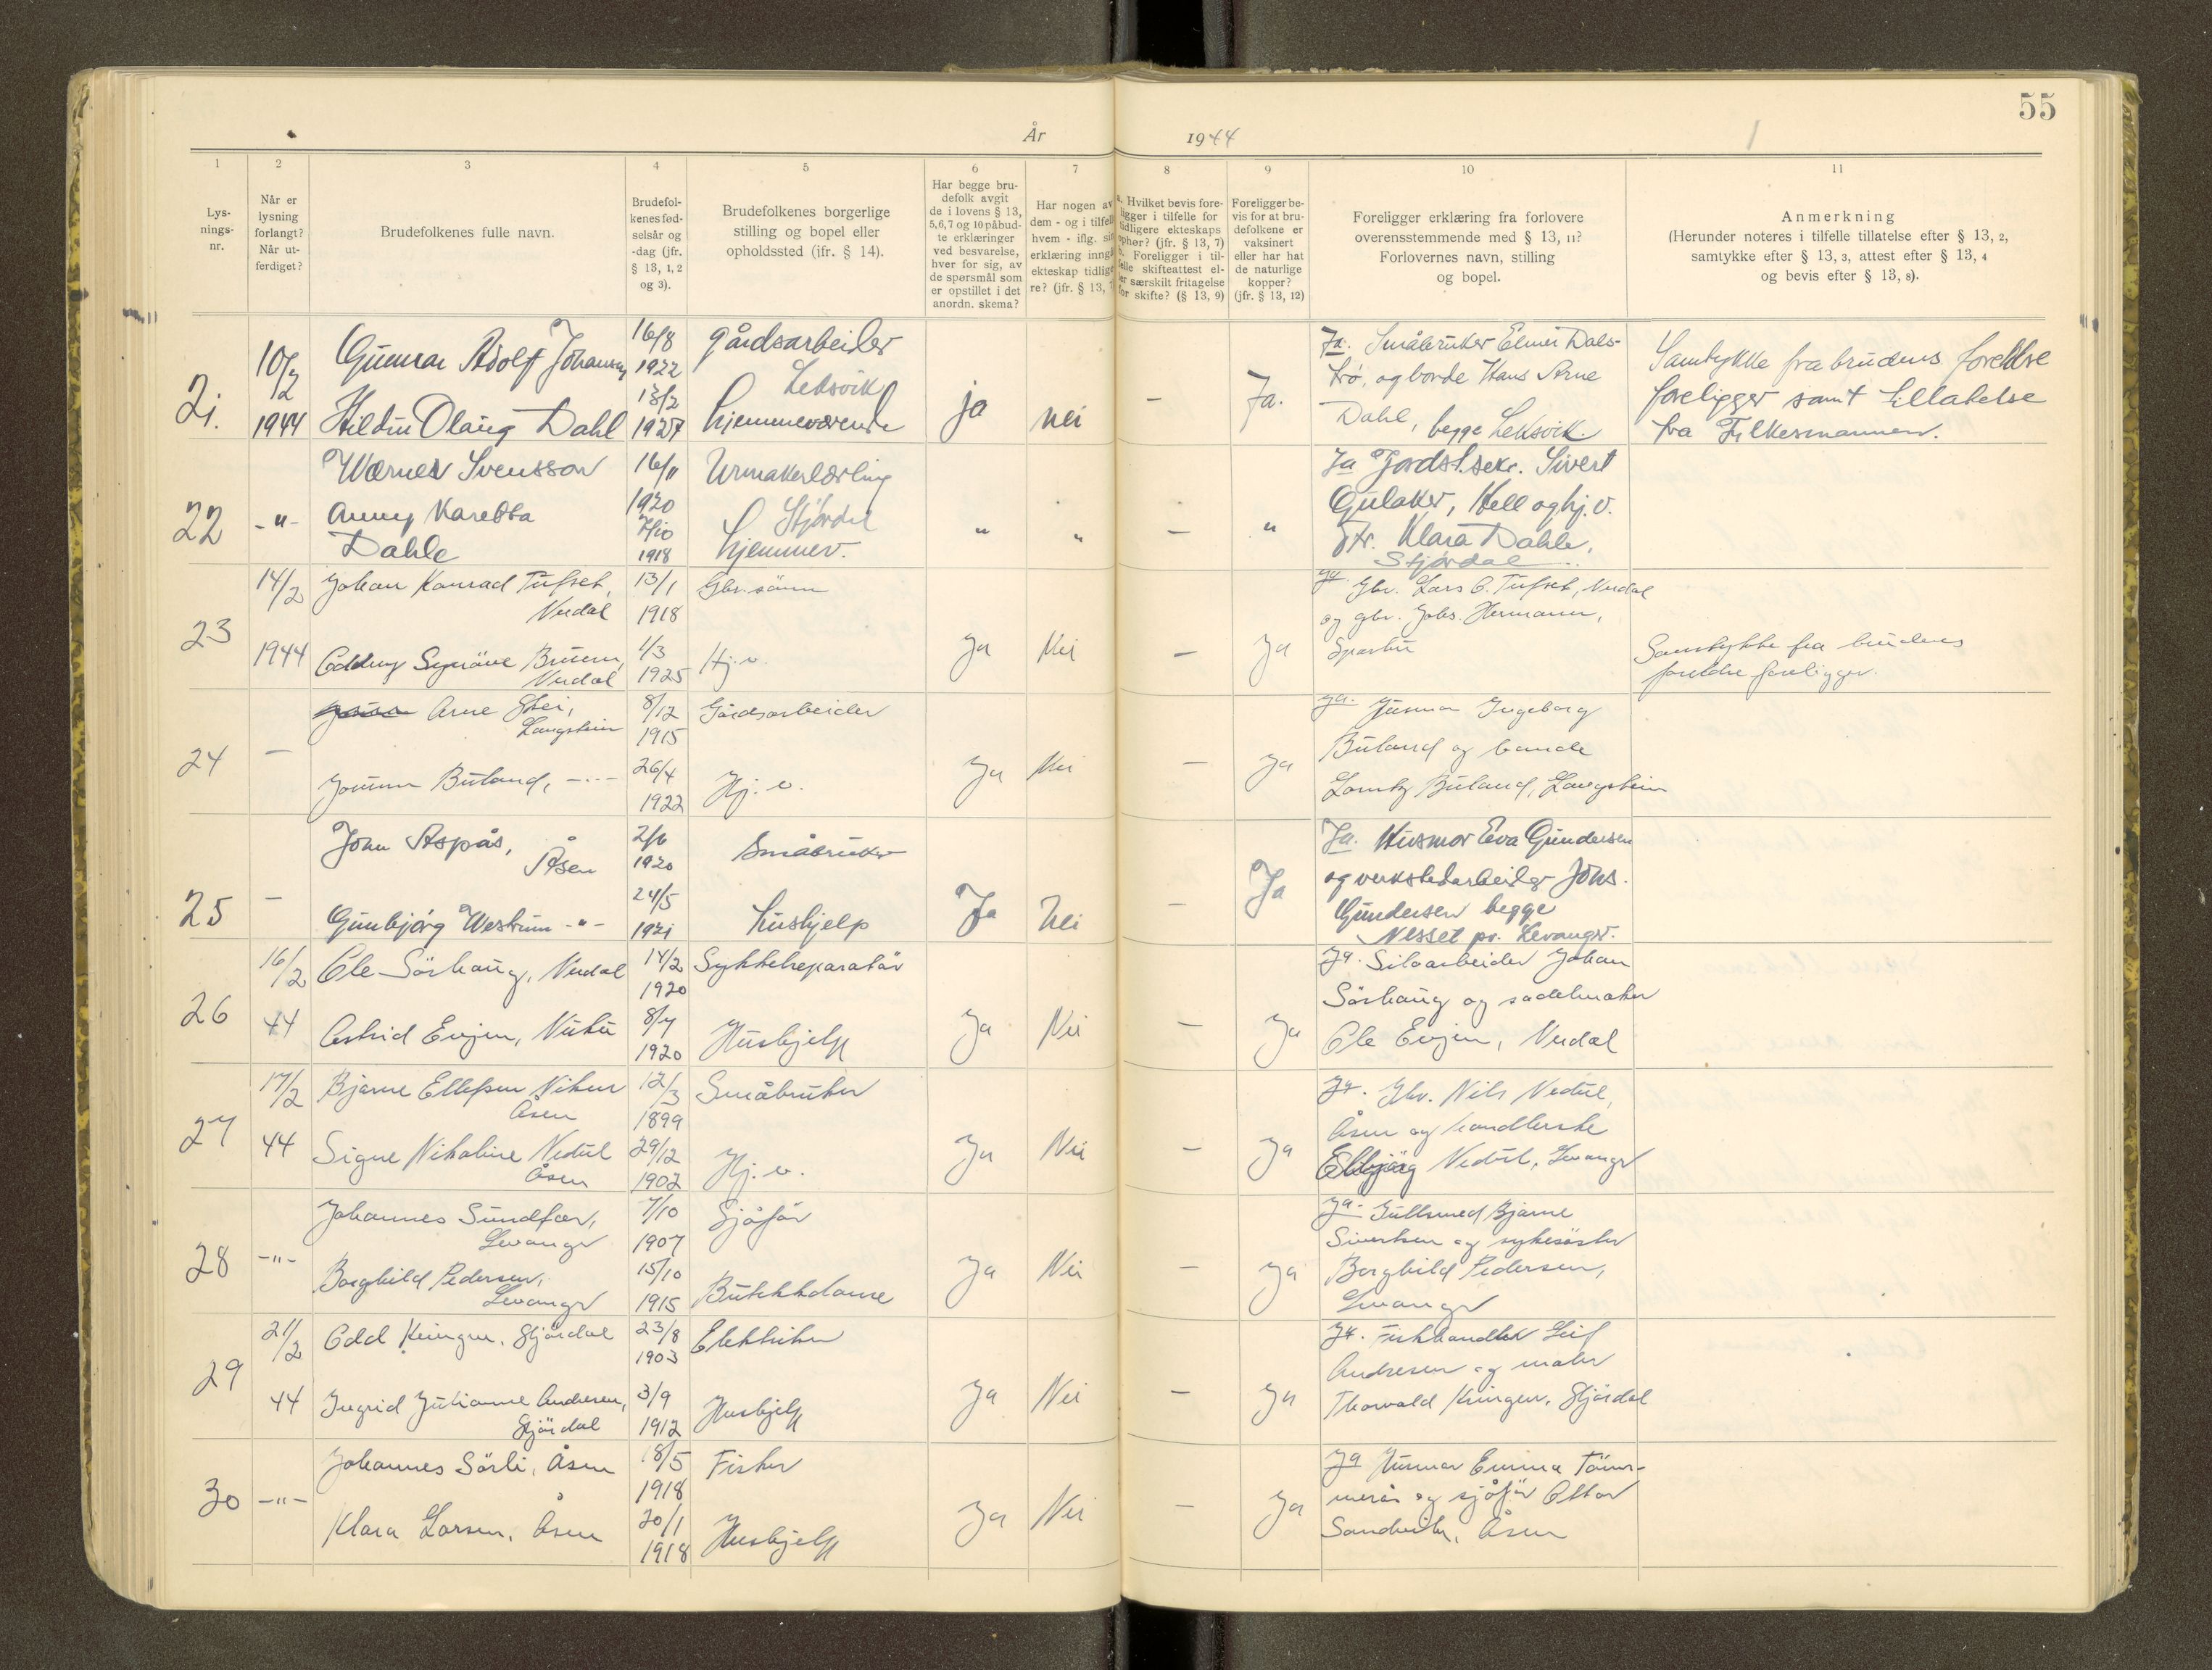 55
År
1944
1
2
3
4
5
6
7
8
9
10
11
Lys-
nings-
nr.
Når er
lysning
forlangt?
Når ut-
ferdiget?
Brudefolkenes fulle navn.
Brudefol-
kenes fød-
selsår og
-dag (jfr.
§ 13, 1, 2
og 3).
Brudefolkenes borgerlige
stilling og bopel eller
opholdssted (jfr. § 14).
Har begge bru-
defolk avgit
de i lovens § 13,
5,6,7 og 10 påbud-
te erklæringer
ved besvarelse,
hver for sig, av
de spørsmål som
er opstillet i det
anordn. skema?
Har nogen av
dem - og i tilfell
hvem - iflg. sin
erklæring inngå
ekteskap tidlige
re? (jfr. § 13, 7
a. Hvilket bevis fore-
ligger i tilfelle for
tidligere ekteskaps
ophør? (jfr. § 13, 7)
b. Foreligger i til-
felle skifteattest el-
ler særskilt fritagelse
for skifte? (§ 13, 9)
Foreligger be-
vis for at bru-
defolkene er
vaksinert
eller har hat
de naturlige
kopper?
(jfr. § 13, 12)
Foreligger erklæring fra forlovere
overensstemmende med § 13, 11?
Forlovernes navn, stilling
og bopel.
Anmerkning
(Herunder noteres i tilfelle tillatelse efter § 13, 2,
samtykke efter § 13, 3, attest efter § 13, 4
og bevis efter § 13, 8).
21.
10/2
1944
Gunnar Adolf Johansen
16/8
1922
gårdsarbeider
Leksvik
Hildur Olaug Dahl
13/2
1927
hjemmeværende
ja
nei
-
Ja.
Ja. Småbruker Elmer Dals-
trø, og borde Hans Arne
Dahl, begge Leksvik.
Samtykke fra brudens foreldre
foreligger samt tillatelse
fra Fylkesmannen.
22
-"-
Werner Svensson
16/11
1920
Urmakerlærling
Stjørdal
Anny Karetta
Dahle
7/10
1918
hjemmev.
"
"
-
-
"
Ja Jordst.sekr. Sivert
Gulaker, Hell og hj.v.
Fr. Klara Dahle,
Stjørdal
23
14/2
1944
Johan Konrad Tufset,
Verdal
13/1
1918
Gbr.sønn
Oddny Synöve Bruem,
Verdal
1/3
1925
Hj.v.
Ja
Nei
-
Ja
Ja. Gbr. Lars O. Tufset, Verdal
og gbr. Johs. Hermann,
Sparbu
Samtykke fra brudens
foreldre foreligger.
24
-
Arne Stei,
Langstein
8/12
1915
Gårdsarbeider
Jorunn Buland, -..-
26/4
1922
Hj.v.
Ja
Nei
-
Ja
Ja. Husmor Ingeborg
Buland og bonde
Lorntz Buland, Langstein
25
-
John Aspås,
Åsen
2/6
1920
Småbruker
Gunbjörg Westrum -"-
24/5
1921
hushjelp
Ja
Nei
-
Ja
Ja. Husmor Eva Gundersen
og verkstedarbeider Johs.
Gundersen begge
Nesset pr. Levanger.
26
16/2
44
Ole Sörhaug, Verdal
14/2
1920
Sykkelreparatör
Astrid Evjen, Vuku
8/7
1920
Hushjelp
Ja
Nei
-
Ja
Ja. Siloarbeider Johan
Sörhaug og sadelmaker
Ole Evjen, Verdal
27
17/2
44
Bjarne Ellefsen Viken
Åsen
12/3
1899
Småbruker
Signe Nikoline Vedul
Åsen
29/12
1902
Hj.v.
Ja
Nei
-
Ja
Ja. Gbr. Nils Vedul,
Åsen og handlerske
Ellbjörg Vedul, Levanger
28
-"-
Johannes Sundfær,
Levanger
7/10
1907
Sjåför
Borghild Pedersen,
Levanger
15/10
1915
Butikkdame
Ja
Nei
-
Ja
Ja. Gullsmed Bjarne
Sivertsen og sykesöster
Borghild Pedersen,
Levanger
29
21/2
44
Odd Kringen, Stjørdal
23/8
1903
Elektriker
Ingrid Julianne Andresen,
Stjördal
3/9
1912
Hushjelp
Ja
Nei
-
Ja
Ja. Fiskhandler Leif
Andresen og maler
Thorvald Kringen, Stjördal
30
-"-
Johannes Sörli, Åsen
18/5
1918
Fisker
Klara Larsen, Åsen
20/1
1918
Hushjelp
Ja
Nei
-
Ja
Ja Husmor Emma Töm-
merås og sjåför Ottar
Sandvik, Åsen